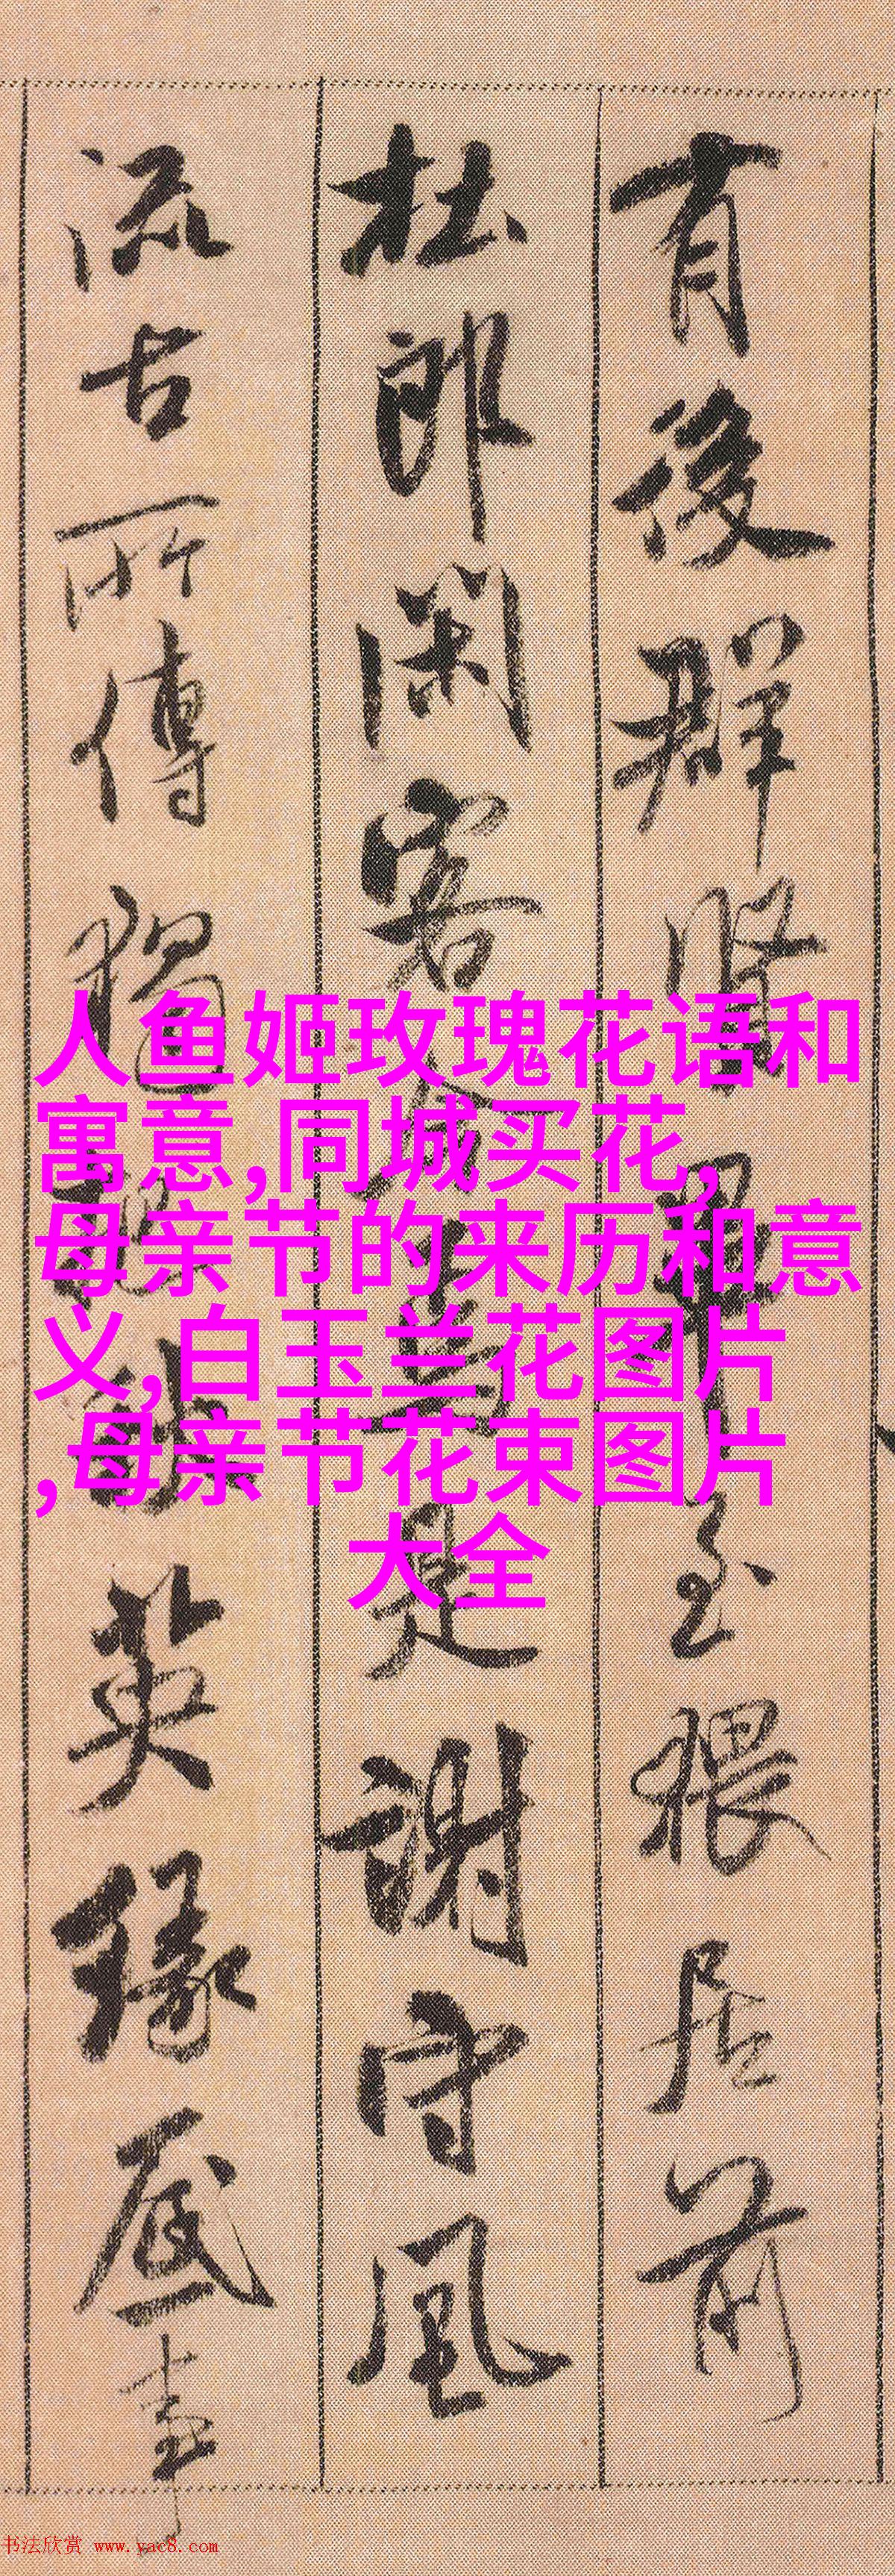 有後群賢畢至猥居前
杜郎閑客今焉是謝守風
流古所傳獨把秋英緣底事
人鱼姬玫瑰花语和
寓意,同城买花,
母亲节的来历和意
义,白玉兰花图片
,母亲节花束图片
大全
书法欣赏 www.yac8.com